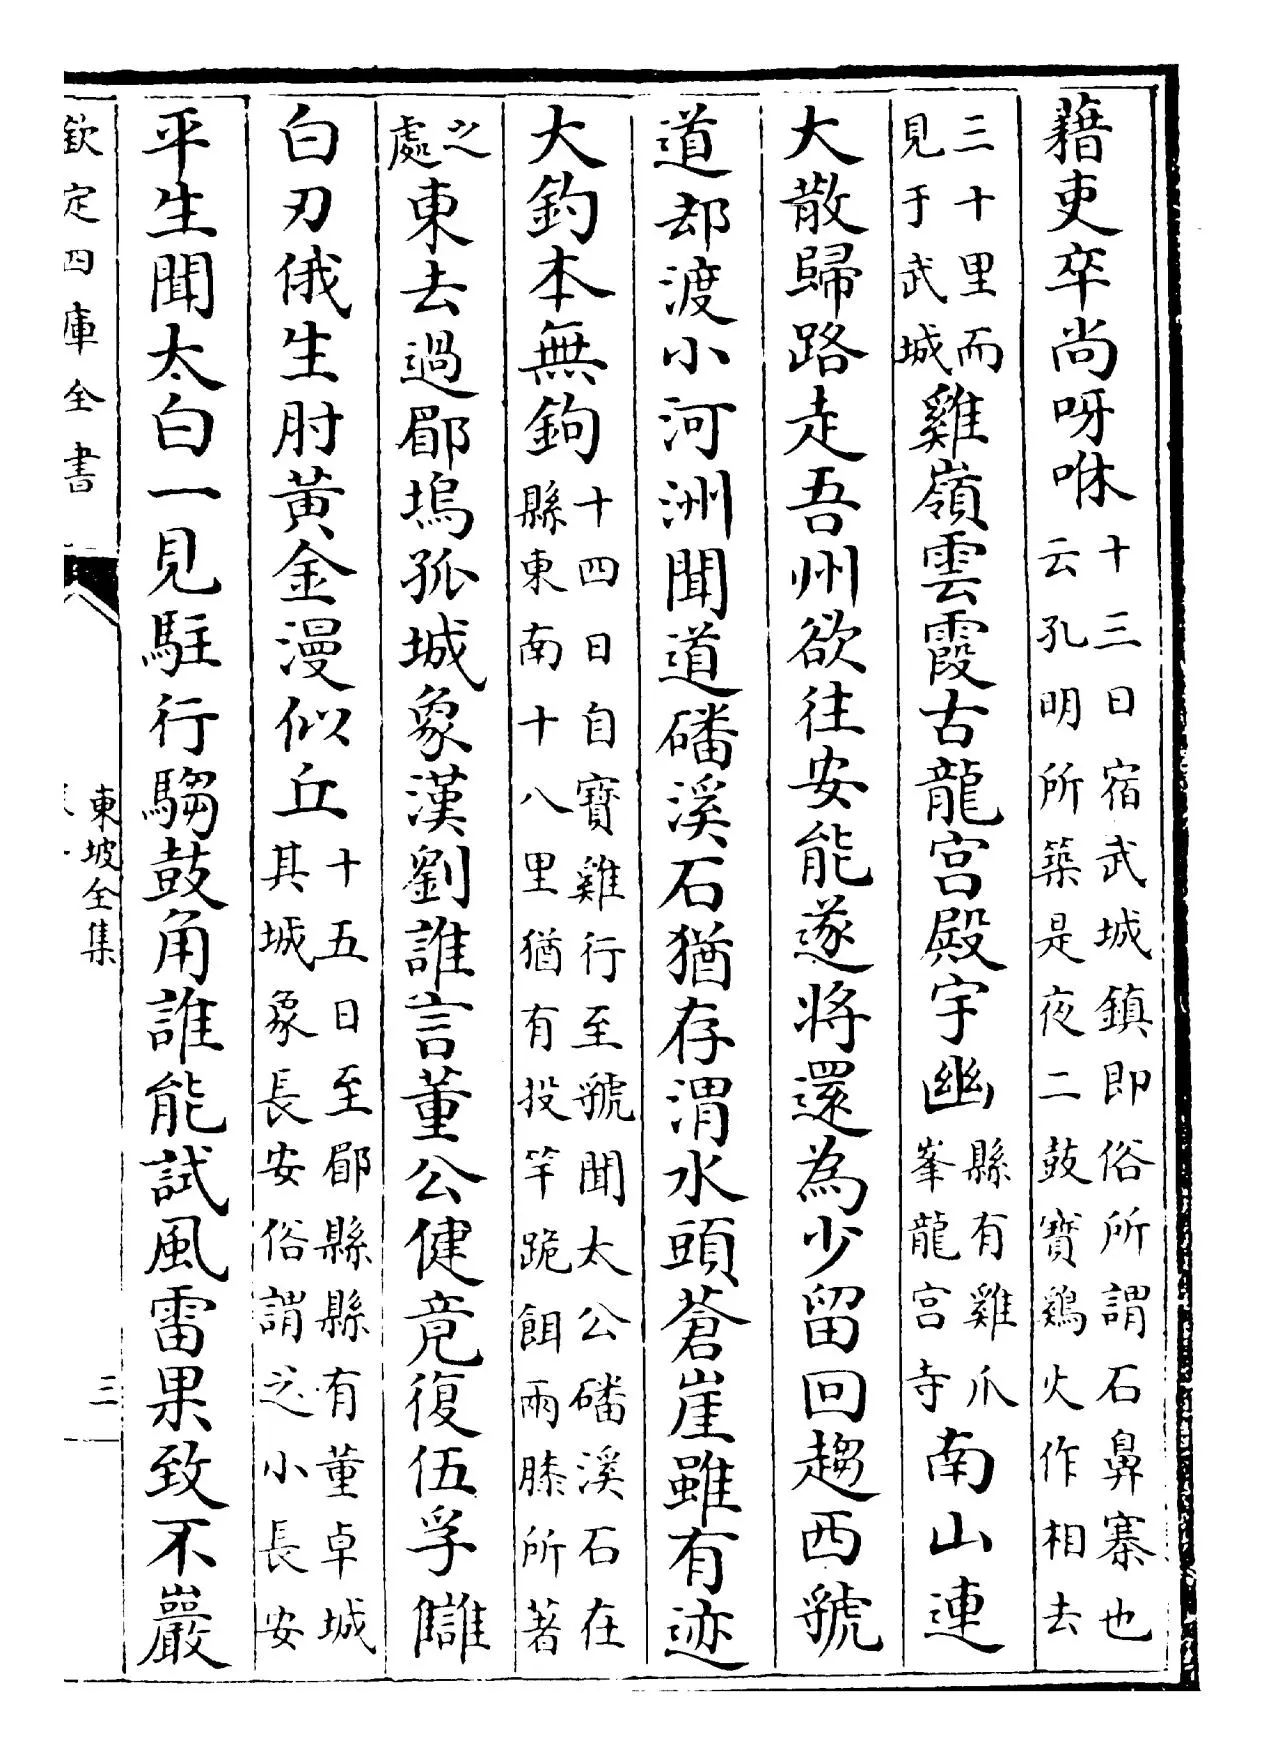 藉吏卒尚呀咻十三日宿武城鎮即俗所謂石鼻寨也云孔明所築是夜二鼓寶鷄火作相去
三十里而見于武城雞嶺雲霞古龍宮殿宇幽縣有雞爪峯龍宮寺南山連
大散歸路走吾州欲往安能遂將還為少留回趨西虢
道却渡小河洲聞道磻溪石猶存渭水頭蒼崖雖有迹
大釣本無鉤十四日自寶雞行至虢聞太公磻溪石在縣東南十八里猶有投竿跪餌兩膝所著
之處東去過郿塢孤城象漢劉誰言董公健竟復伍孚讎
白刃俄生肘黃金漫似丘十五日至郿縣縣有董卓城其城象長安俗謂之小長安
平生聞太白一見駐行騶鼓角誰能試風雷果致不嚴
欽定四庫全書
東坡全集
三